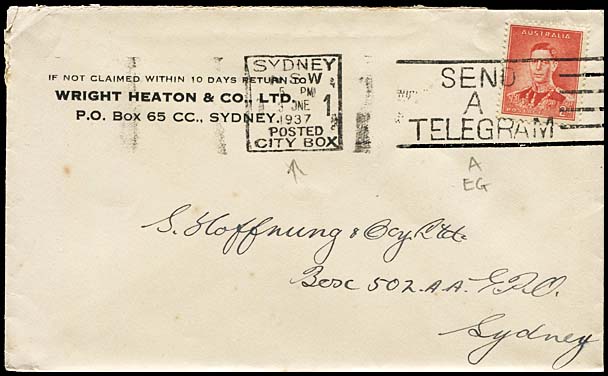 IF NOT CLAIMED WITHIN 10 DAYS RETURN TO
WRIGHT HEATON & CO., LTD.
P.O. BOX 65 CC., SYDNEY.
SYDNEY
N.S.W
5 PM
JNE 1
1937
POSTED
CITY BOX
SEND
A
TELEGRAM
AUSTRALIA
A
EG
S. Hoffnung & Coy. Ltd.
Box 502.A.A. G.P.O.
Sydney